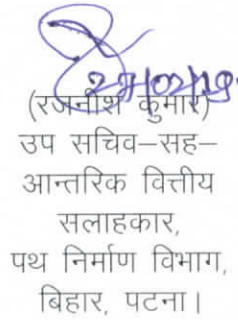 27/02/19
(रजनीश कुमार)
उप सचिव–सह–
आन्तरिक वित्तीय
सलाहकार,
पथ निर्माण विभाग,
बिहार, पटना।